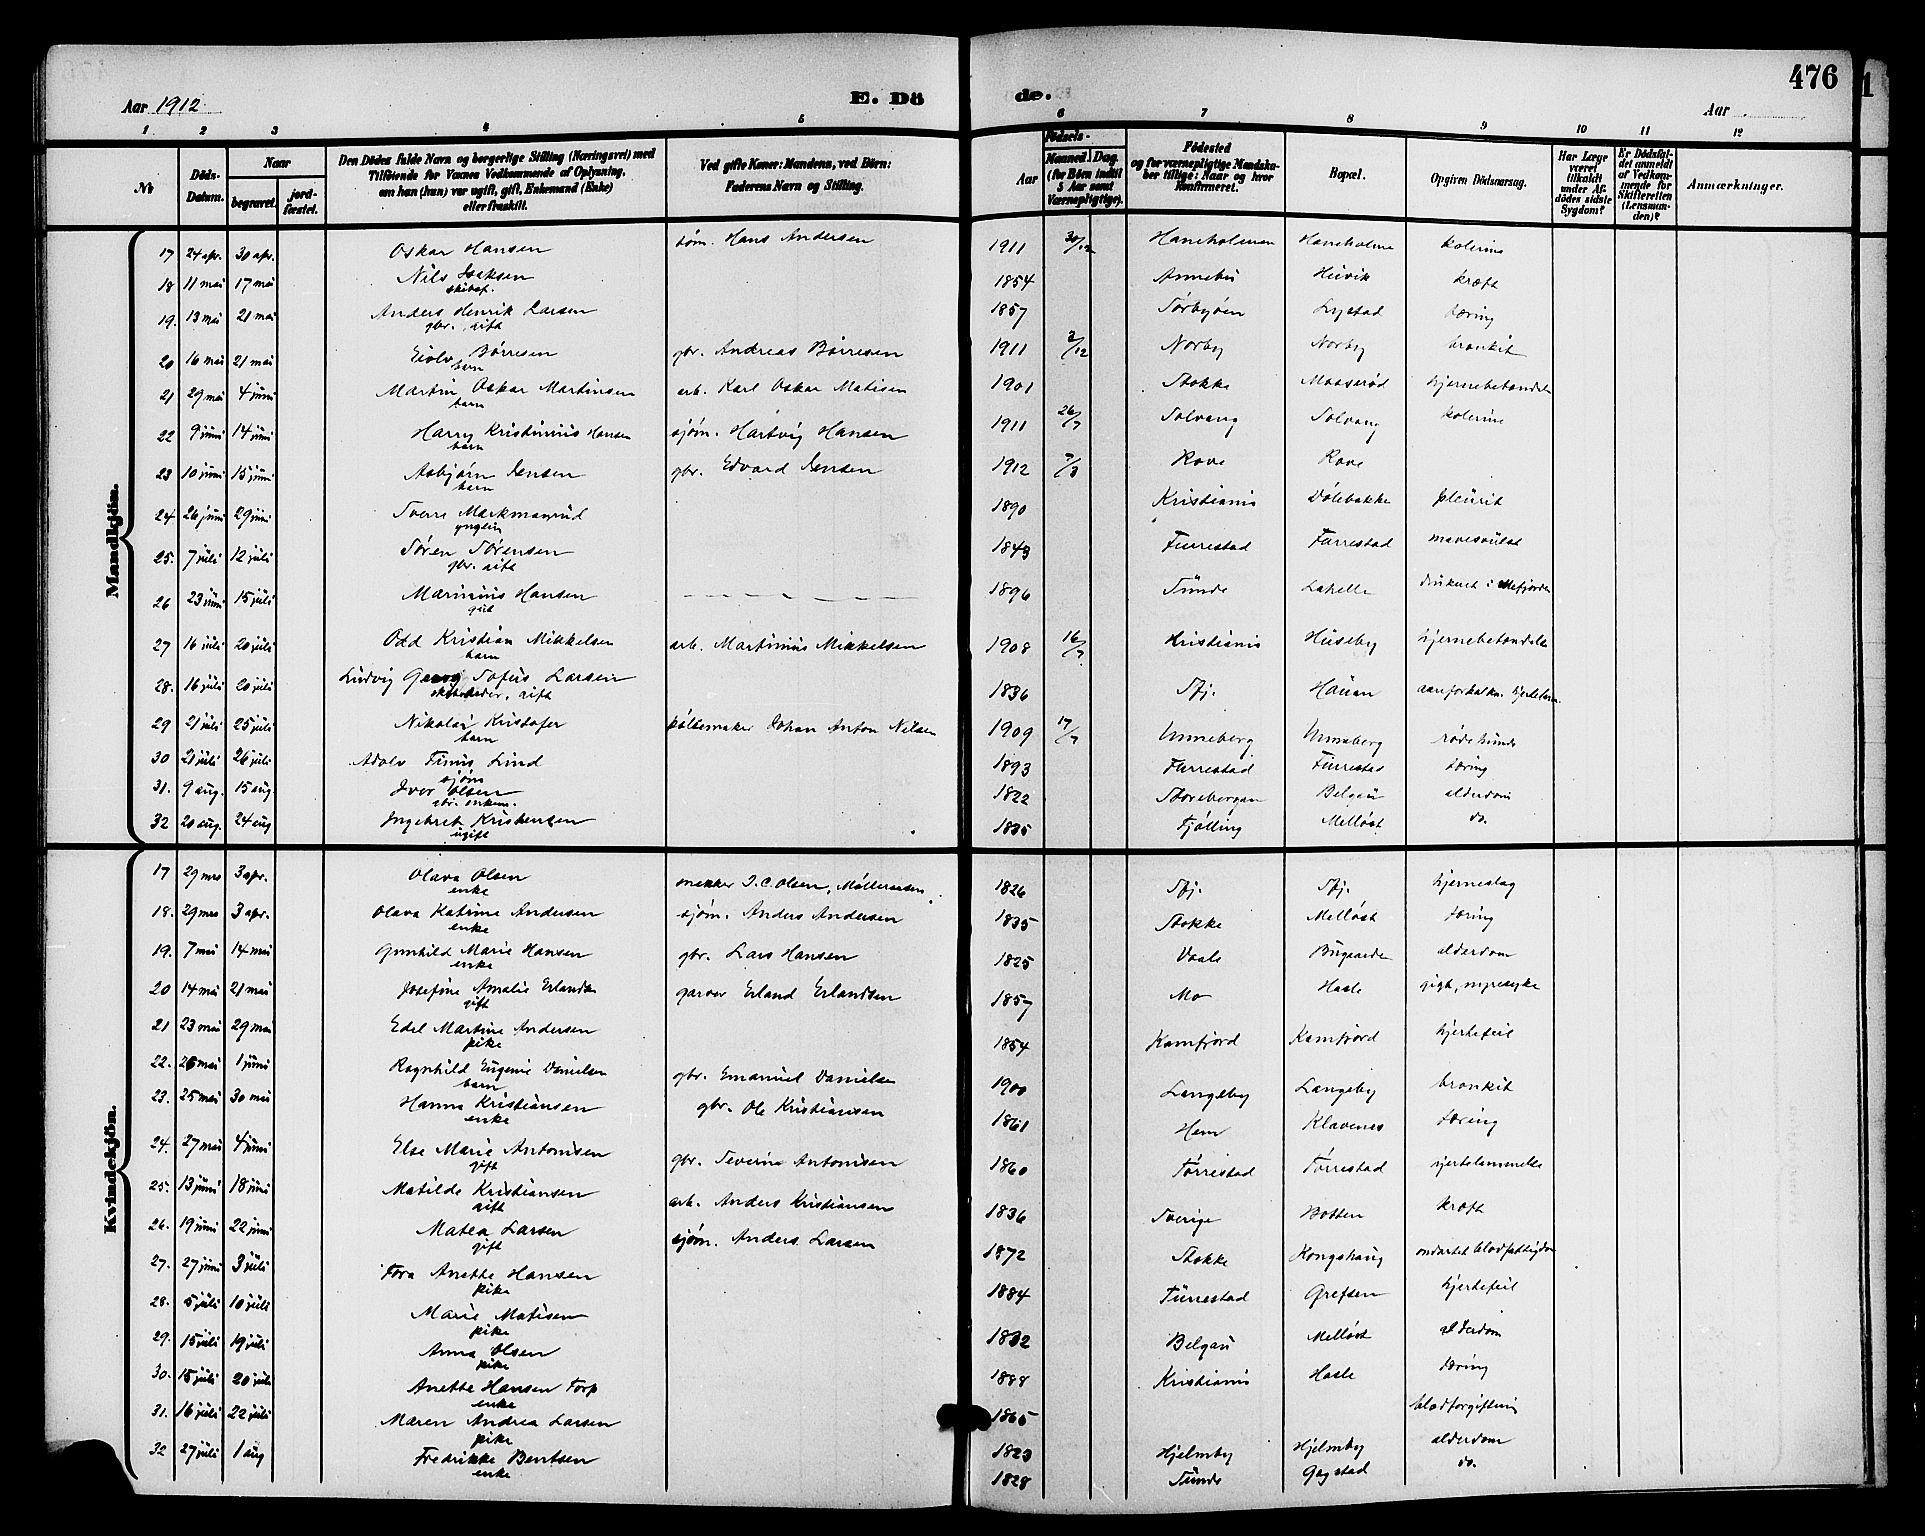 476
Aar 1912 E. Dö de. Aar
1 2 3 4 5 6 7 8 9 10 11 12
No
Döds-Datum.
Naar begravet. jord-fæstet.
Den Dödes fulde Navn og borgerlige Stilling (Næringsvei) med Tilföiende for Voxnes Vedkommende af Oplysning, om han (hun) var ugift, gift, Enkemand (Enke) eller fraskilt.
Ved gifte Koner: Mandens, ved Börn: Faderens Navn og Stilling.
Födsels-
Aar Maaned. Dag. (for Börn indtil 5 Aar samt Værnepligtige).
Födested og for værnepligtige Mandskaber tillige: Naar og hvor Konfirmeret.
Bopæl.
Opgiven Dödsaarsag.
Har Læge været tilkaldt under Afdödes sidste Sygdom?
Er Dödsfaldet anmeldt af Vedkommende for Skifteretten (Lensmanden)?
Anmærkninger.
Mandkjön.
17 24 apr. 30 apr. Oskar Hansen søm. Hans Andersen 1911 30/12 Haneholmen Haneholmen kolerine
18 11 mai 17 mai Nils Isaksen 1854 Annebu Huvik kræft
19. 13 mai 21 mai Anders Henrik Larsen gbr., gift 1857 Sørbyøen Lystad tæring
20 16 mai 21 mai Eiolv Børresen barn gbr. Andreas Børresen 1911 2/12 Norby Norby bronkit
21 29 mai 4 juni Martin Oskar Martinsen barn arb. Karl Oskar Matisen 1901 Stokke Maaserød hjernebetændelse
22 9 juni 14 juni Harry Kristinius Hansen barn sjøm. Hartvig Hansen 1911 26/7 Solvang Solvang kolerine
23 10 juni 15 juni Asbjørn Jensen barn gbr. Edvard Jensen 1912 7/3 Rove Rove
24 26 juni 29 juni Sverre Markmanrud yngling 1890 Kristiania Dølebakke pleurit
25. 7 juli 12 juli Søren Sørensen gbr. gift 1843 Furrestad Furrestad mavesvulst
26 23 juni 15 juli Marinius Hansen gut 1896 Sunde Lahelle druknet i Mefjorden
27 16 juli 20 juli Odd Kristian Mikkelsen barn arb. Martinius Mikkelsen 1908 16/7 Kristiania Huseby hjernebetændelse
28. 16 juli 20 juli Ludvig Georg Sofus Larsen skibsreder, gift 1836 Sfj. Hauan aareforkalkn.
29 21 juli 25 juli Nikolai Kristofer barn pølsemaker Johan Anton Nilsen 1909 17/7 Unneberg Unneberg røde hunde
30 21 juli 26 juli Adolv Finus Lind sjøm 1893 Furrestad Furrestad tæring
31. 9 aug. 15 aug Iver Olsen gbr. enkem. 1822 Storebergan Belgau alderdom
32 20 aug. 24 aug Ingebret Kristensen ugift 1835 Tjølling Melløst do.
Kvindekjön.
17 29 mrs 3 apr. Olava Olsen enke snekker J.C. Olsen, Mølleraasen 1826 Sfj. Sfj. hjerneslag
18. 29 mrs 3 apr. Olava Katrine Andersen enke sjøm. Anders Andersen 1835 Stokke Melløst tæring
19. 7 mai 14 mai Gunhild Marie Hansen enke gbr. Lars Hansen 1825 Vaale Bugaarden alderdom
20 14 mai 21 mai Josefine Amalie Erlandsen gift garver Erland Erlandsen 1857 Mo Hasle gigt, nyresyke
21 23 mai 29 mai Edel Martine Andersen pike 1854 Kamfjord Kamfjord hjertefeil
22. 26 mai 1 juni Ragnhild Eugenie Danielsen barn gbr. Emanuel Danielsen 1900 Langeby Langeby bronkit
23. 25 mai 30 mai Hanna Kristiansen enke gbr. Ole Kristiansen 1861 Hem Klavenes tæring
24. 27 mai 4 juni Else Marie Antonisen gift gbr. Severin Antonisen 1860 Tørrestad Tørrestad hjertelammelse
25. 13 juni 18 juni Matilde Kristiansen gift arb. Anders Kristiansen 1836 Sverige Botten kræft
26. 19 juni 22 juni Matea Larsen gift sjøm. Anders Larsen 1872 Stokke Kongshaug ondartet blodfattigdom
27. 27 juni 3 juli Tora Anette Hansen pike 1884 Furrestad Grefsen hjertefeil
28. 5 juli 10 juli Marie Matisen pike 1832 Belgau Melløst alderdom
29. 15 juli 19 juli Anna Olsen pike 1888 Kristiania Hasle tæring
30. 15 juli 20 juli Anette Hansen Torp enke 1865 blodforgiftning
31. 16 juli 22 juli Maren Andrea Larsen pike 1823 Hjelmby Hjelmby alderdom
32 27 juli 1 aug Fredrikke Bentsen enke 1828 Sunde Gogstad do.